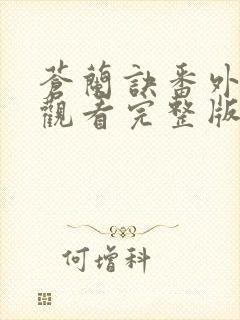 蒼蘭訣番外
觀看完整版
何增科